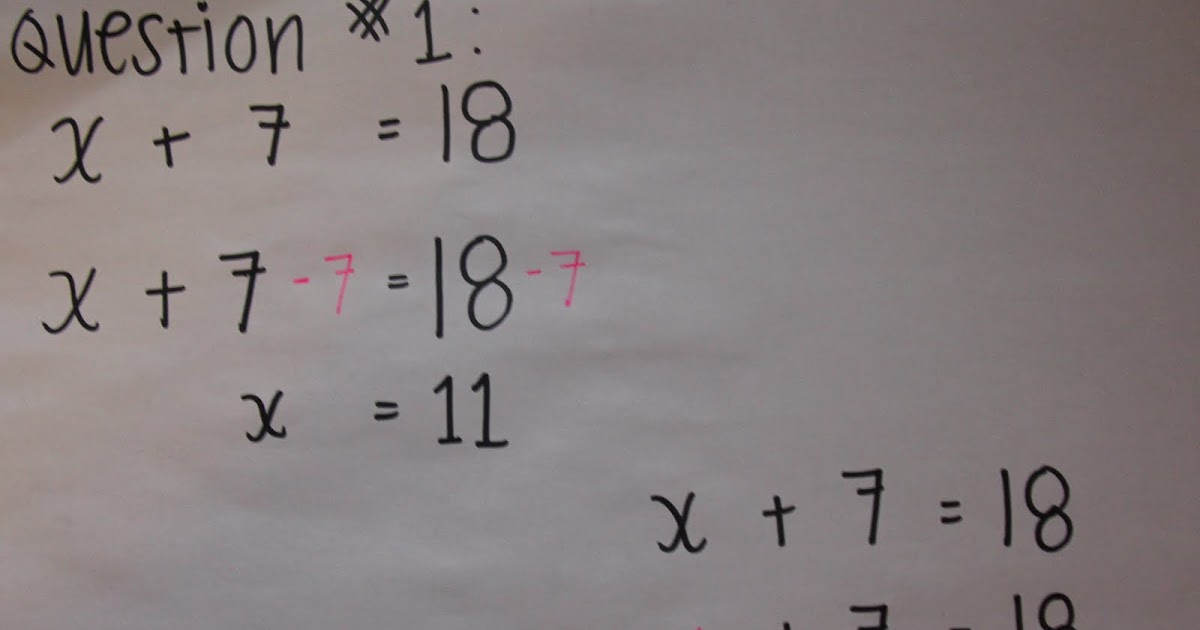 Question #1:
x + 7 = 18
x + 7 - 7 = 18 - 7
x = 11
x + 7 = 18